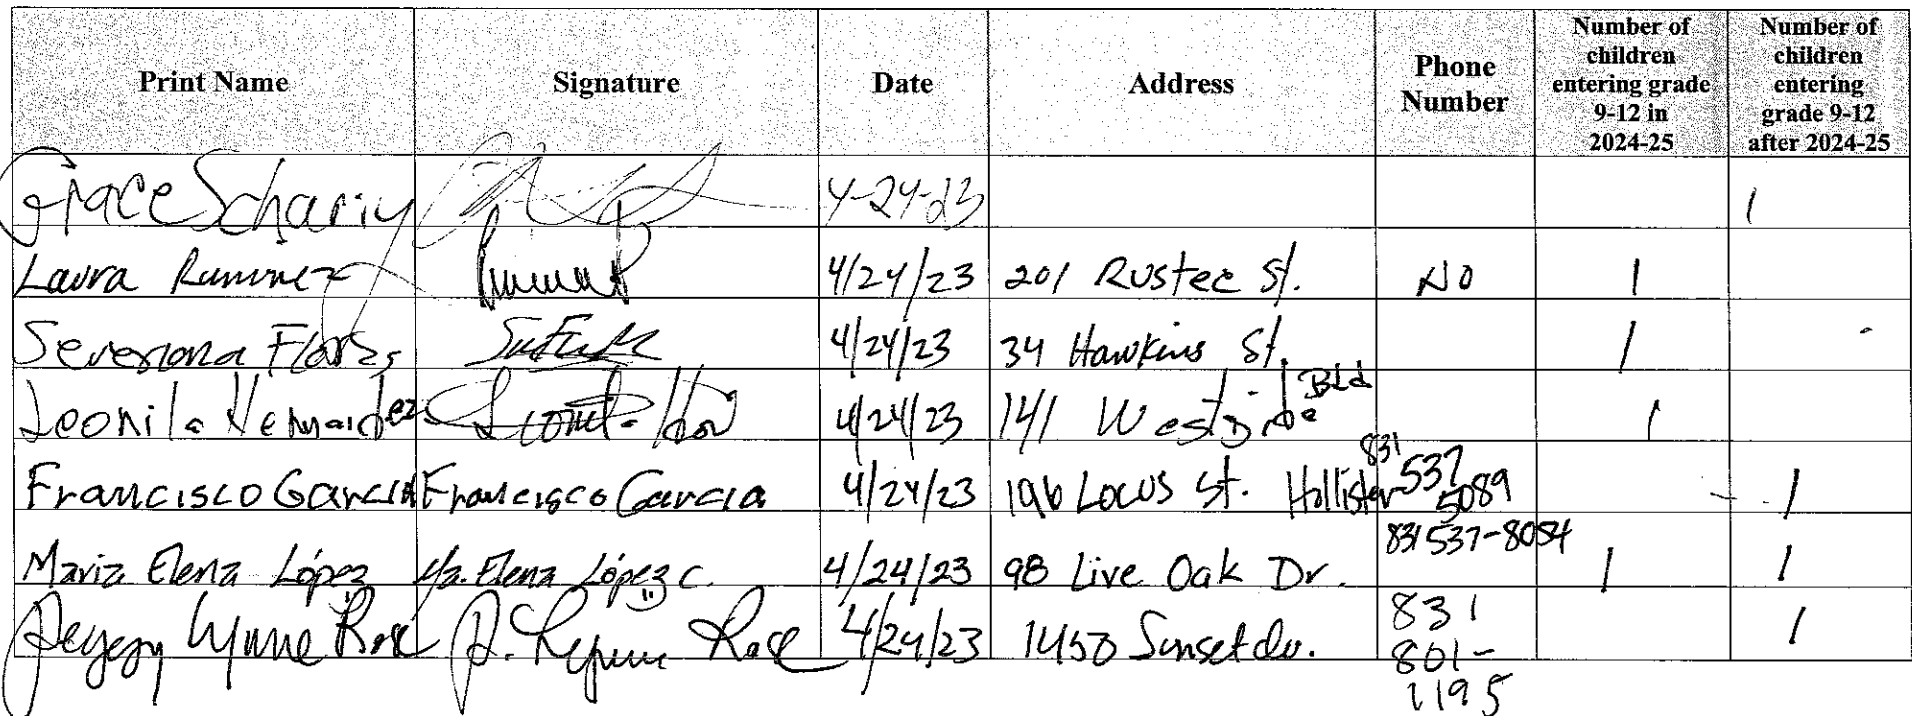 Print Name Signature Date Address Phone Number Number of children entering grade 9-12 in 2024-25 Number of children entering grade 9-12 after 2024-25
Grace 4-24-23 1
Laura Ramirez 4/24/23 201 Rustee St. NO 1
Flores 4/24/23 34 Hawkins St. 1
Leonila Hernandez 4/24/23 141 Westside Bld 1
Francisco Garcia Francisco Garcia 4/24/23 196 Locus St. Hollister 831 537 5089 1
Maria Elena López Ma. Elena López C. 4/24/23 98 Live Oak Dr. 831 537-8054 1 1
Lynne Rose P. Lynne Rose 4/24/23 1450 Sunset dr. 831 801-1195 1